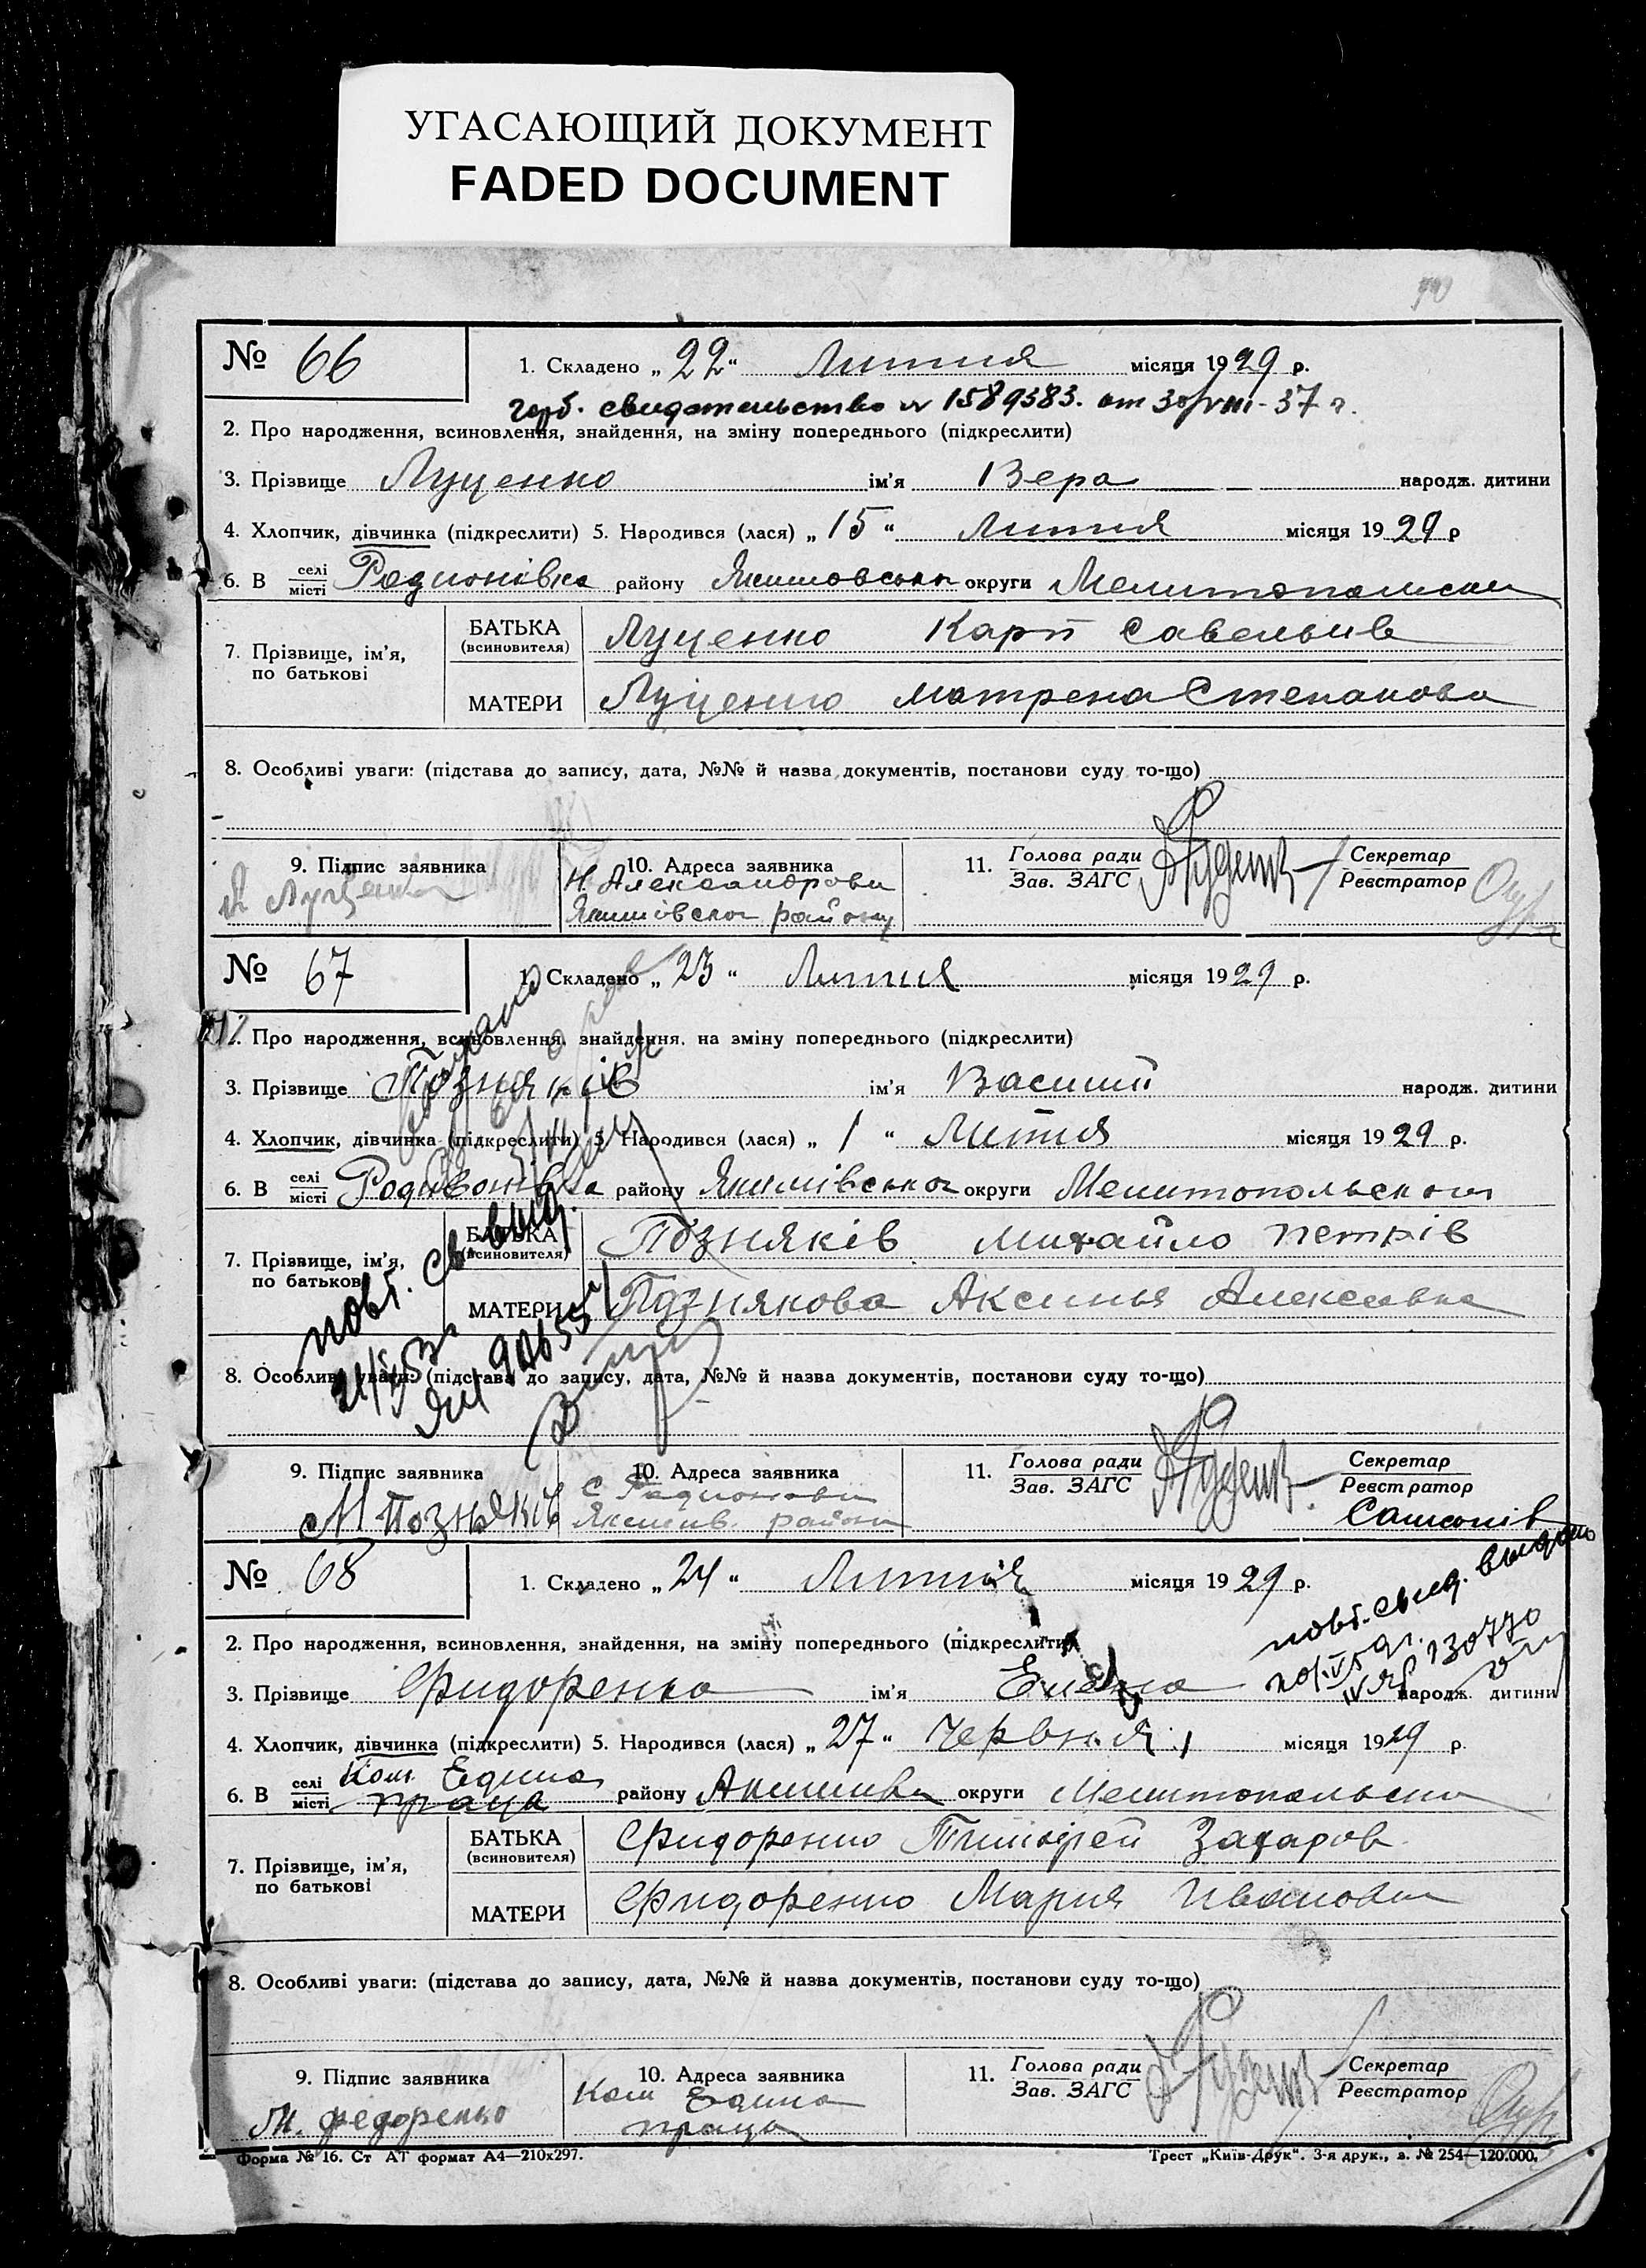 УГАСАЮЩИЙ ДОКУМЕНТ
FADED DOCUMENT
№ 66
1. Складено „ 22 “ Липня місяця 1929 р.
герб. свидетельство № 1589383. от 30/VIII-37 г.
2. Про народження, всиновлення, знайдення, на зміну попереднього (підкреслити)
3. Прізвище Луценко ім’я Вера народж. дитини
4. Хлопчик, дівчинка (підкреслити) 5. Народився (лася) „ 15 “ Липня місяця 1929 р
6. В селі місті Радионівка району Якимовсько округи Мелитопольски
7. Прізвище, ім’я, по батькові
БАТЬКА (всиновителя) Луценко Карп Савельив
МАТЕРИ Луценко Матрена Степанова
8. Особливі уваги: (підстава до запису, дата, №№ й назва документів, постанови суду то-що)
9. Підпис заявника Луценко
10. Адреса заявника Н. Александровка
Якимівског району
11. Голова ради Зав. ЗАГС
Секретар Реєстратор
№ 67
1. Складено „ 23 “ Липня місяця 1929 р.
2. Про народження, всиновлення, знайдення, на зміну попереднього (підкреслити)
3. Прізвище Позняків ім’я Василий народж. дитини
4. Хлопчик, дівчинка (підкреслити) 5. Народився (лася) „ 1 “ Липня місяця 1929 р.
6. В селі місті Родивонівка району Якимівського округи Мелитопольского
7. Прізвище, ім’я, по батькові
БАТЬКА (всиновителя) Позняків Михайло Петрів
МАТЕРИ Познякова Аксинья Алексевна
повт. св. выд.
8. Особливі уваги: (підстава до запису, дата, №№ й назва документів, постанови суду то-що)
9. Підпис заявника М Позняків
10. Адреса заявника с Радионовка
Якимів. района
11. Голова ради Зав. ЗАГС
Секретар Реєстратор
№ 68
1. Складено „ 24 “ Липня місяця 1929 р.
повт. свид. выдано
230770
2. Про народження, всиновлення, знайдення, на зміну попереднього (підкреслити)
3. Прізвище Фидоренко ім’я Елена народж. дитини
4. Хлопчик, дівчинка (підкреслити) 5. Народився (лася) „ 27 “ Червня місяця 1929 р.
6. В селі місті Ком Едина праця району Акимивки округи Мелитопольски
7. Прізвище, ім’я, по батькові
БАТЬКА (всиновителя) Фидоренко Тимофей Захаров
МАТЕРИ Фидоренко Мария Ивановна
8. Особливі уваги: (підстава до запису, дата, №№ й назва документів, постанови суду то-що)
9. Підпис заявника М. Федоренко
10. Адреса заявника Ком Едина
праця
11. Голова ради Зав. ЗАГС
Секретар Реєстратор
Форма № 16. Ст АТ формат А4—210x297.
Трест „Київ-Друк“. 3-я друк., з. № 254—120.000.